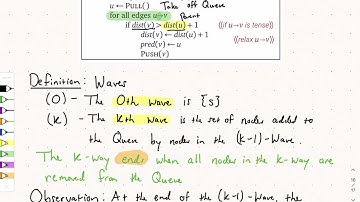 u ← PULL() Take off Queue
for all edges u→v Parent
if dist(v) > dist(u) + 1 ⟨⟨if u→v is tense⟩⟩
dist(v) ← dist(u) + 1 ⟨⟨relax u→v⟩⟩
pred(v) ← u
PUSH(v)
Definition: Waves
(0) - The 0th wave is {s}
(k) - The Kth wave is the set of nodes added to
the Queue by nodes in the (k-1)-Wave.
The k-way ends when all nodes in the k-way are
removed from the Queue
Observation: At the end of the (k-1)-Wave, the